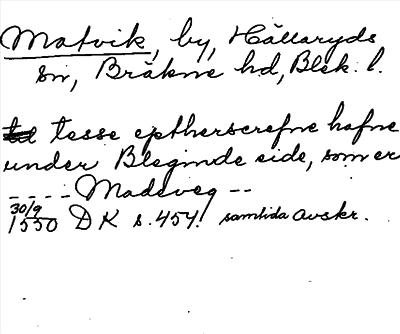 Matvik, by, Hällaryds
sn, Bräkne hd, Blek. l.
tesse eptherscrefne hafne
under Bleginde side, som er
----- Madeveg --
30/9
1550 DK s. 454. samtida avskr.